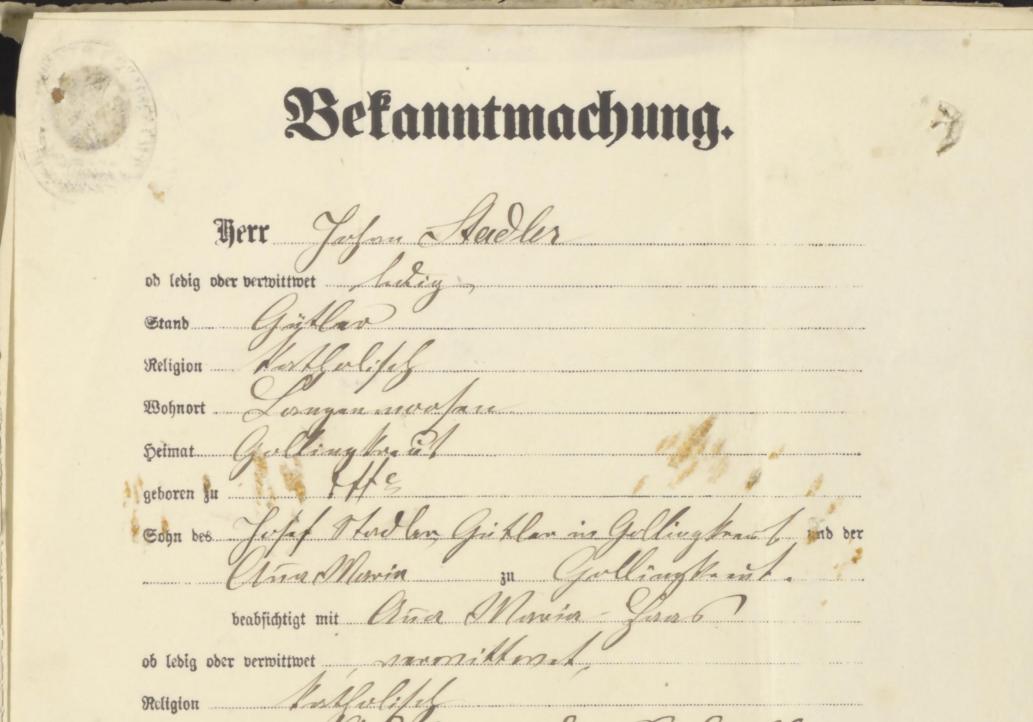 Bekanntmachung.
Herr Johann Stadler
ob ledig oder verwittwet ledig
Stand Gütler
Religion katholisch
Wohnort Langenmoosen
Heimat Gollingkreut
geboren zu
Sohn des Josef Stadler, Gütler in Gollingkreut und der
Aña Maria zu Gollingkreut.
beabsichtigt mit Aña Maria Haas
ob ledig oder verwittwet verwittwet,
Religion katholisch